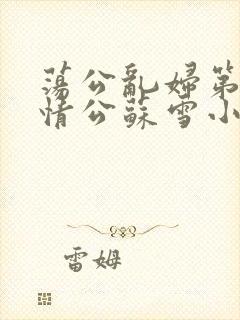 蕩公亂婦第
情公蘇雪小
雷姆